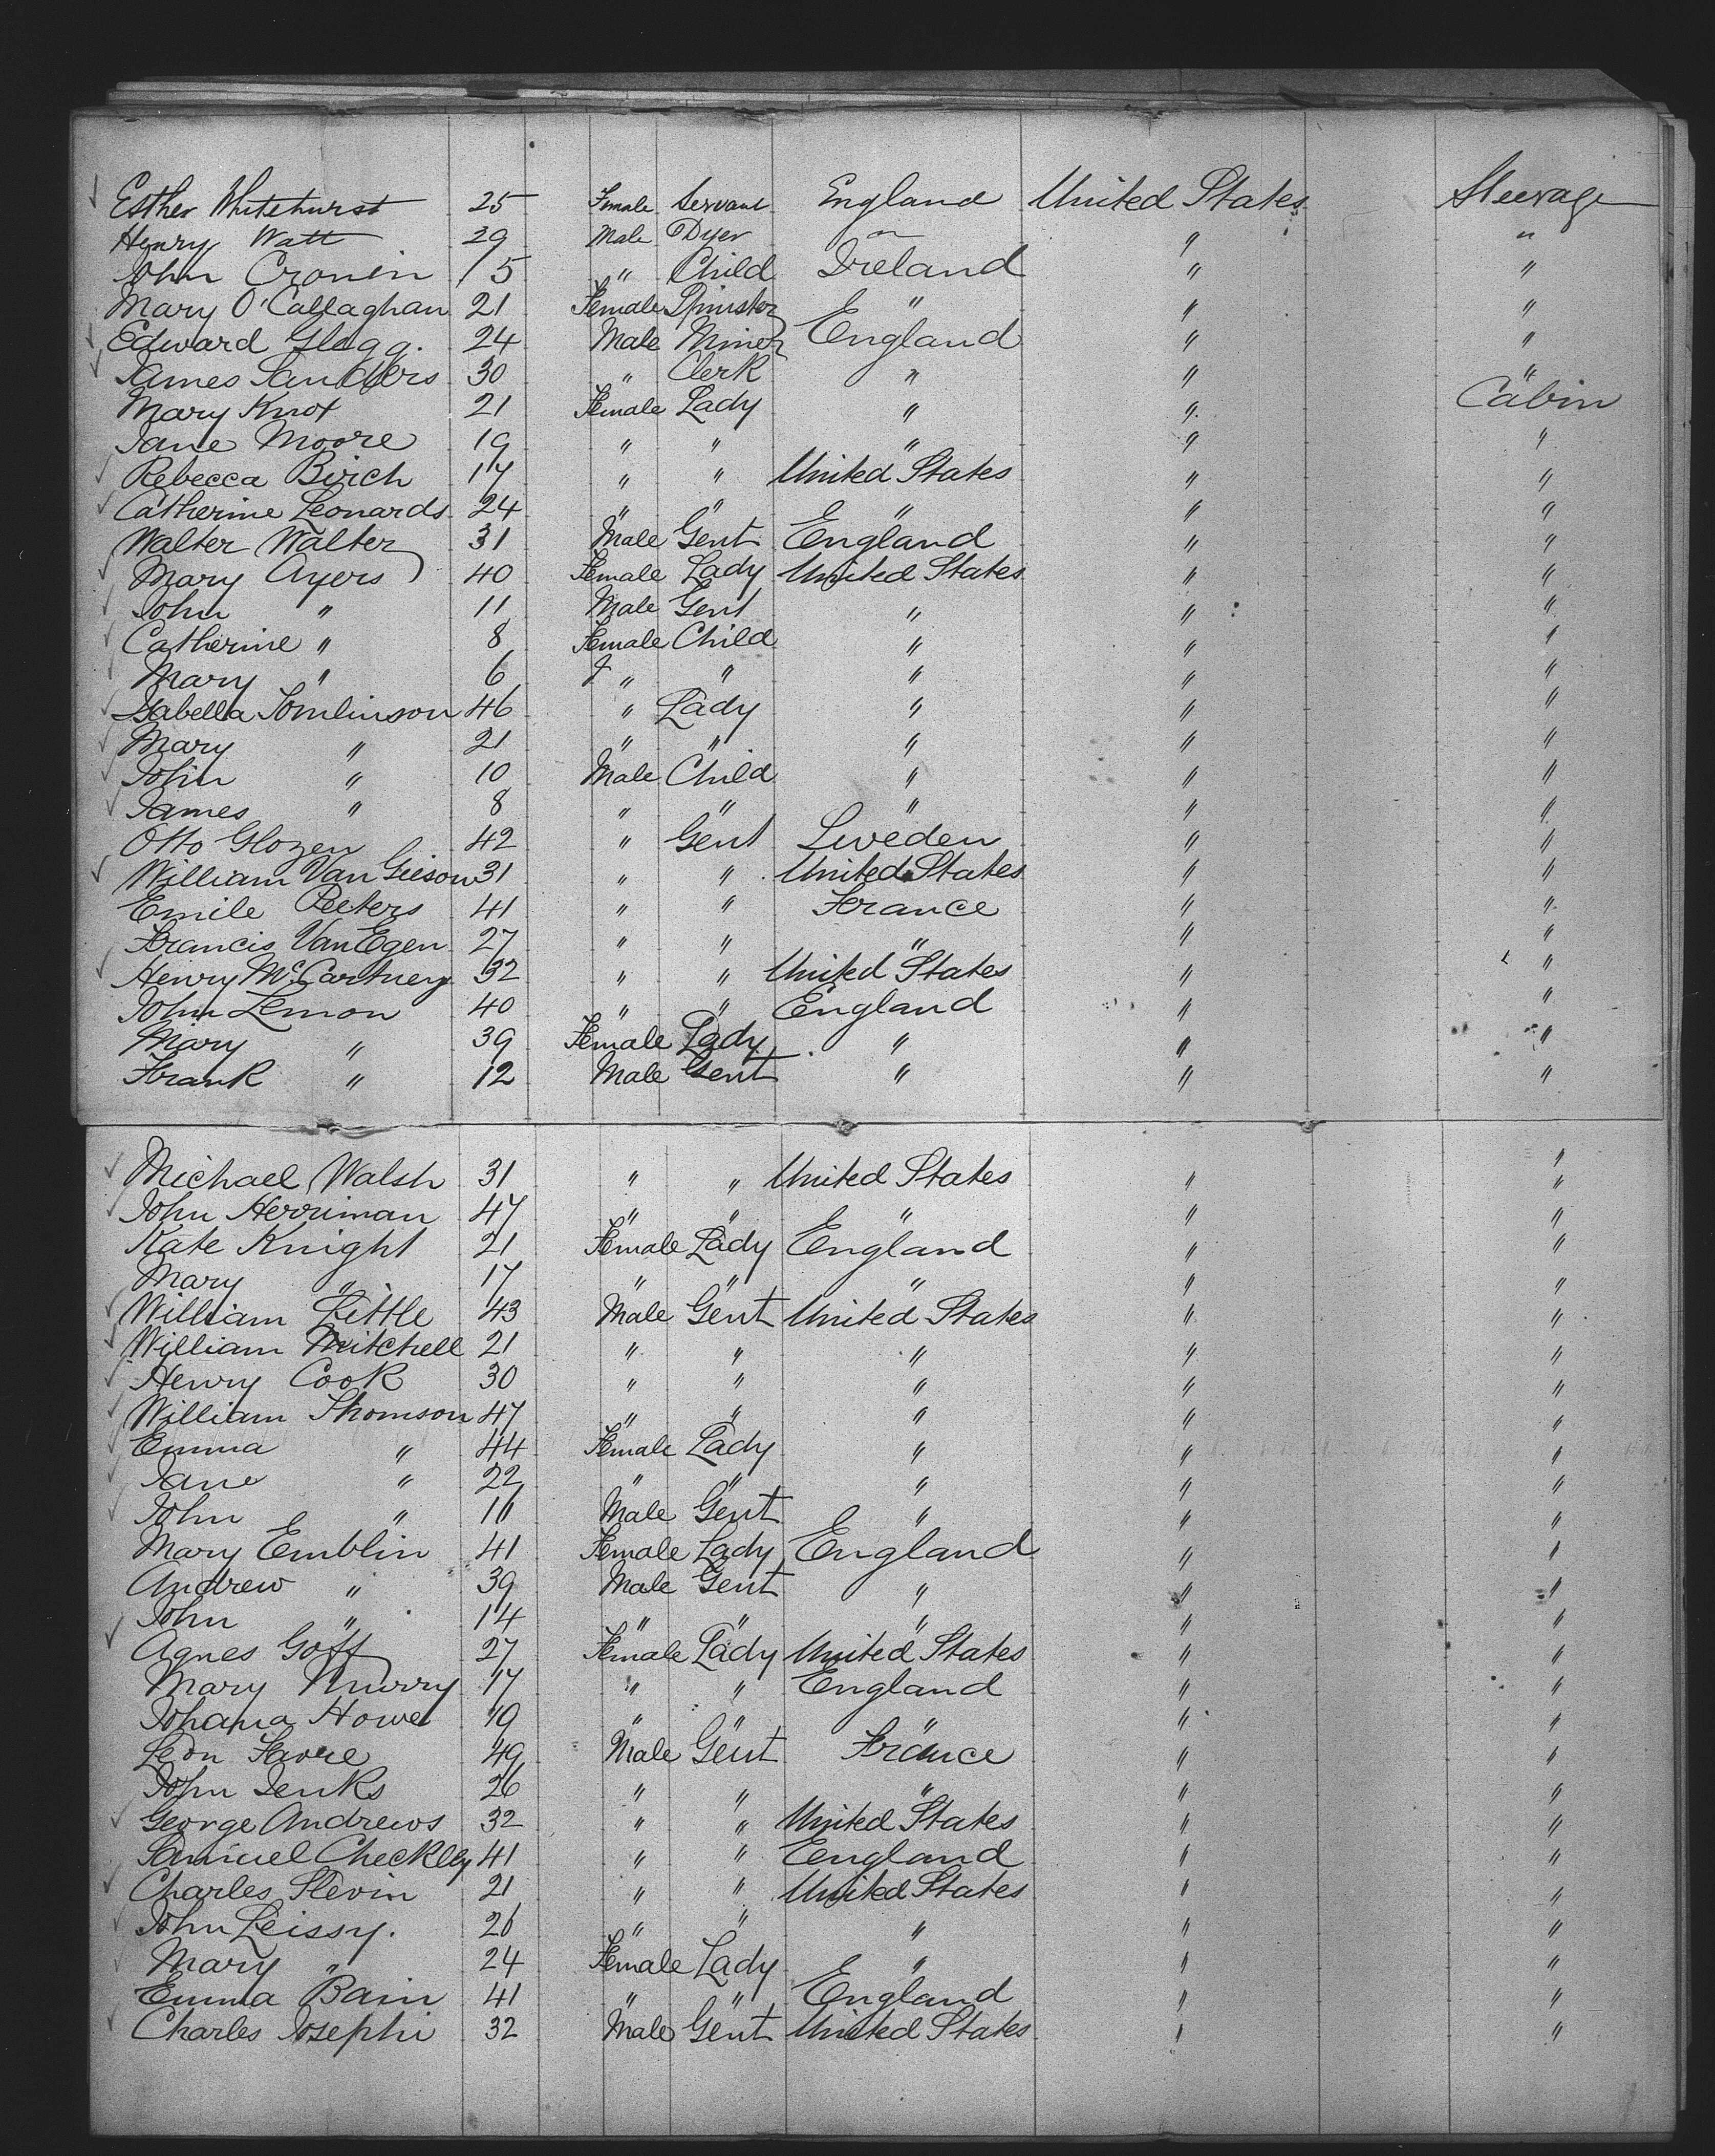 Esther Whitehurst 25 Female Servant England United States Steerage
Henry Watt 29 Male Dyer " " "
John Cronin 15 " Child Ireland " "
Mary O'Callaghan 21 Female Spinster " " "
Edward Glegg. 24 Male Miner England " "
James Sanders 30 " Clerk " " "
Mary Knox 21 Female Lady " " Cabin
Jane Moore 19 " " " " "
Rebecca Birch 17 " " United States " "
Catherine Leonards 24 " " " " "
Walter Walter 31 Male Gent England " "
Mary Ayers 40 Female Lady United States " "
John " 11 Male Gent " " "
Catherine " 8 Female Child " " "
Mary " 6 " " " " "
Isabella Tomlinson 46 " Lady " " "
Mary " 21 " " " " "
John " 10 Male Child " " "
James " 8 " " " " "
Otto Glozen 42 " Gent Sweden " "
William Van Gieson 31 " " United States " "
Emile Peeters 41 " " France " "
Francis Van Egen 27 " " " " "
Henry McCartney 32 " " United States " "
John Lemon 40 " " England " "
Mary " 39 Female Lady " " "
Frank " 12 Male Gent " " "
Michael Walsh 31 " " United States " "
John Herriman 47 " " " " "
Kate Knight 21 Female Lady England " "
Mary " 17 " " " " "
William Little 43 Male Gent United States " "
William Mitchell 21 " " " " "
Henry Cook 30 " " " " "
William Thomson 47 " " " " "
Emma " 44 Female Lady " " "
Jane " 22 " " " " "
John " Male Gent " " "
Mary Emblin 41 Female Lady England " "
Andrew " 39 Male Gent " " "
John " 14 " " " " "
Agnes Goff 27 Female Lady United States " "
Mary Murry 17 " " England " "
Johana Howe 19 " " " " "
Leon Favre 49 Male Gent France " "
John Jenks 26 " " " " "
George Andrews 32 " " United States " "
Samuel Checkley 41 " " England " "
Charles Slevin 21 " " United States " "
John Leissy. 26 " " " " "
Mary " 24 Female Lady " " "
Emma Bain 41 " " England " "
Charles Josephi 32 Male Gent United States " "